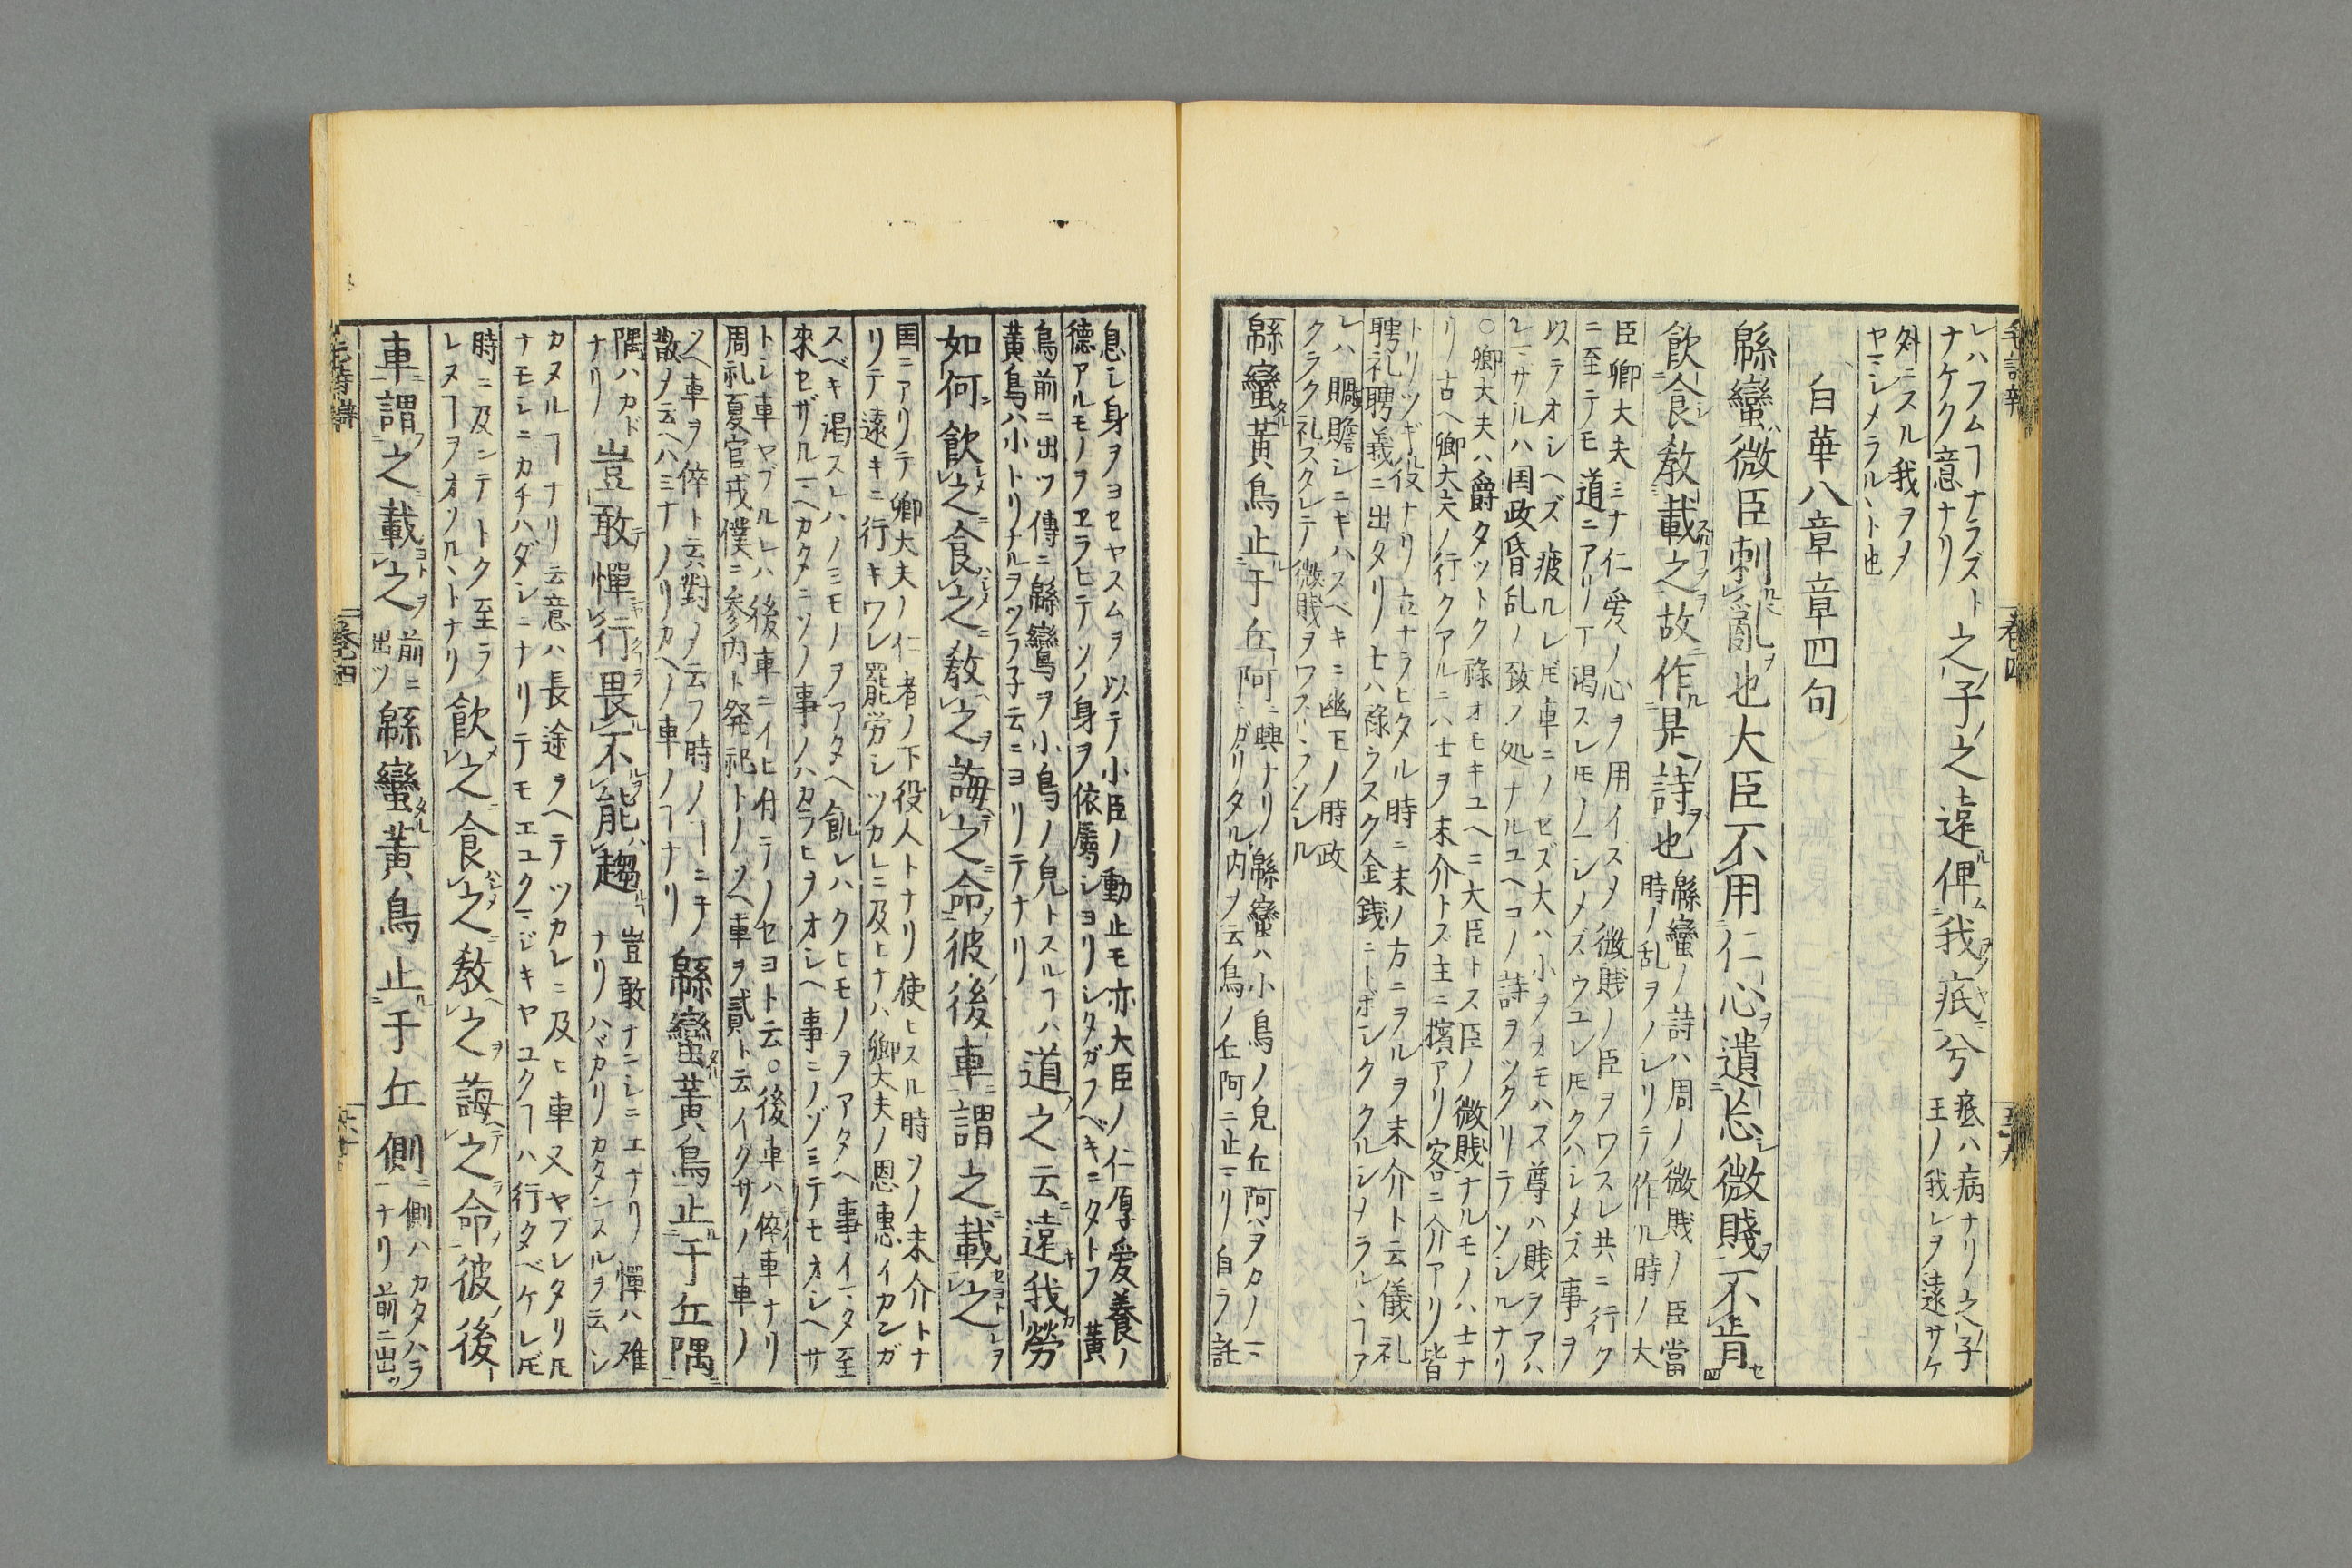 レハフムヿナラズト之子之遠俾我疧兮疧ハ病ナリ之子
ナケク意ナリ 王ノ我レヲ遠サケ
外ニスル我ヲメ
ヤマシメラルヽト也
白華八章章四句
緜蠻微臣刺亂也大臣不用仁心遺忘微賤不肯
飲食敎載之故作是詩也緜蠻ノ詩ハ周ノ微賤ノ臣當
時ノ乱ヲノレリテ作ル時ノ大
臣卿大夫ミナ仁愛ノ心ヲ用イスメ微賤ノ臣ヲワスレ共ニ行ク
ニ至テモ道ニアリテ渇スレモノマシメズウユレ𪜈クハシメズ事ヲ
以テオシヘズ疲ルレ𪜈車ニノセズ大ハ小ヲオモハズ尊ハ賤ヲアハ
レマサルハ国政昏乱ノ致ノ処ナルユヘコノ詩ヲツクリテソシルナリ
○卿大夫ハ爵タットク祿オモキユヘニ大臣トス臣ノ微賤ナルモノハ士ナ
リ古ヘ卿大夫ノ行クアルニハ士ヲ末介トス主ニ擯アリ客ニ介アリ皆
トリツギ役ナリ立ナラヒタル時ニ末ノ方ニヲルヲ末介ト云儀礼
聘礼聘義ニ出タリ士ハ祿ウスク金銭ニトボシククルシメラルヽヿア
レハ賙贍シニキハスベキニ幽王ノ時政
クラク礼スタレテ微賤ヲワスルヽソシル
緜蠻黃鳥止于丘阿興ナリ緜蠻ハ小鳥ノ皃丘阿ハヲカノマ
ガリタル内ヲ云鳥ノ丘阿ニ止マリ自ラ託
息シ身ヲヨセヤスムヲ以テ小臣ノ動止モ亦大臣ノ仁厚愛養ノ
德アルモノヲヱラヒテソノ身ヲ依屬シヨリシタガフベキニタトフ黃
鳥前ニ出ツ傳ニ緜蠻ヲ小鳥ノ皃トスルヿハ道之云遠我勞
黃鳥ハ小トリナルヲツラ子云ニヨリテナリ
如何飲之食之敎之誨之命彼後車謂之載之
国ニアリテ卿大夫ノ仁者ノ下役人トナリ使ヒスル時ソノ末介トナ
リテ遠キニ行キワレ罷労シツカレニ及ヒナハ卿大夫ノ恩惠イカンガ
スベキ渇スレハノミモノヲアタヘ飢レハクヒモノヲアタヘ事イマタ至
來セザルマヘカタニソノ事ノハカラヒヲオシヘ事ニノゾミテモオシヘサ
トシ車ヤブルレハ後車ニイヒ付テノセヨト云○後車ハ倅車ナリ
周礼夏官戎僕ニ参内ト祭祀トノソヘ車ヲ貳ト云イクサノ車ノ
ソヘ車ヲ倅ト云對メ云フ時ノヿニテ緜蠻黃鳥止于丘隅
散メ云ヘハミナノリカヘノ車ノヿナリ
隅ハカド豈敢憚行畏不能趨豈敢ナニシニエナリノ憚ハ难
ナリ ナリハバカリノカタンスルヲ云シ
カヌルヿナリ云意ハ長途ヲヘテツカレニ及ヒ車又ヤブレタリ𪜈
ナモシニカチハダシニナリテモエユクマジキヤユクヿハ行タベケレ𪜈
時ニ及ンテトク至ラ飲之食之敎之誨之命彼後
レヌヿヲオソルヽトナリ
車謂之載之前ニ出ツ緜蠻黃鳥止于丘側側ハカタハラ
ナリ前ニ出ッ